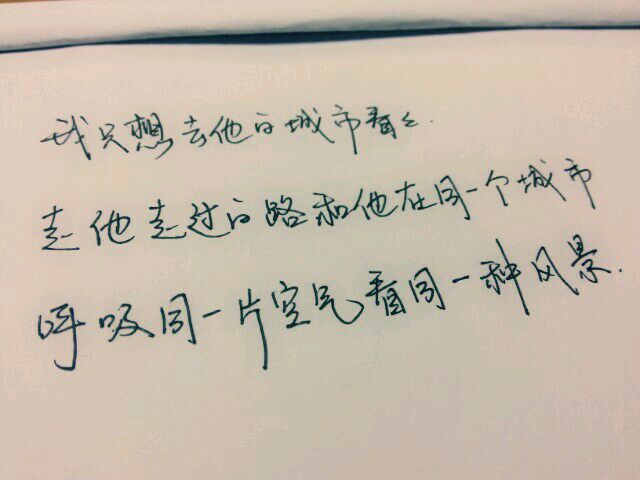 我只想去他的城市看々.
走他走过的路和他在同一个城市
呼吸同一片空气看同一种风景.